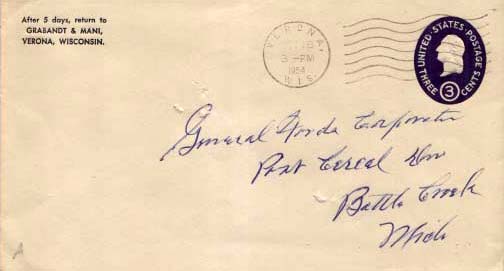 After 5 days, return to
GRABANDT & MANI,
VERONA, WISCONSIN.
VERONA,
3 - PM
1954
WIS.
UNITED·STATES·POSTAGE
THREE 3 CENTS
General Foods Corporation
Post Cereal Div
Battle Creek
Mich